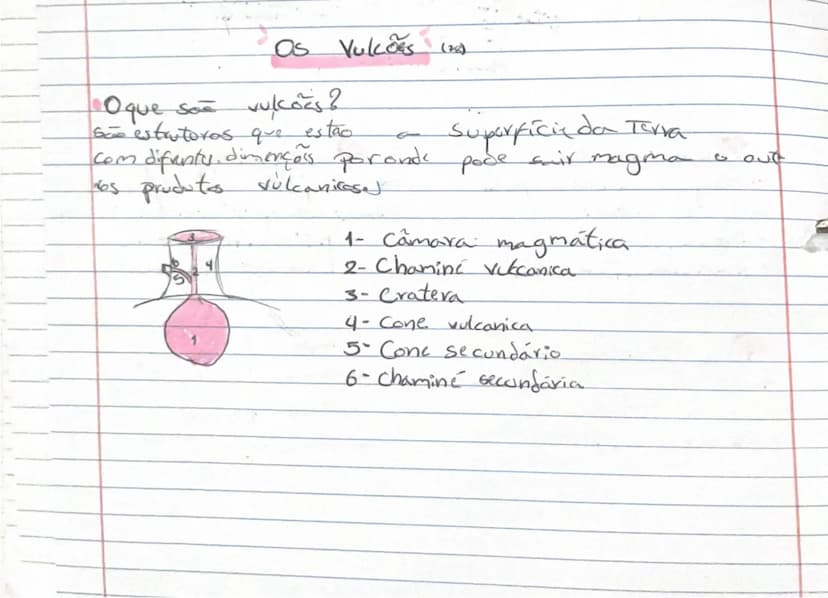 Os Vulcões
O que são vulcões?
São estrutoras que estão a superfície da Terra
com difentes dimenções por onde pode sair magma e out
ros produtos vúlcanicos
3
6 4
5 2
1
1- Câmara magmática
2- Chaminé vulcanica
3- Cratera
4- Cone vulcanica
5- Cone secundário
6- Chaminé secundária